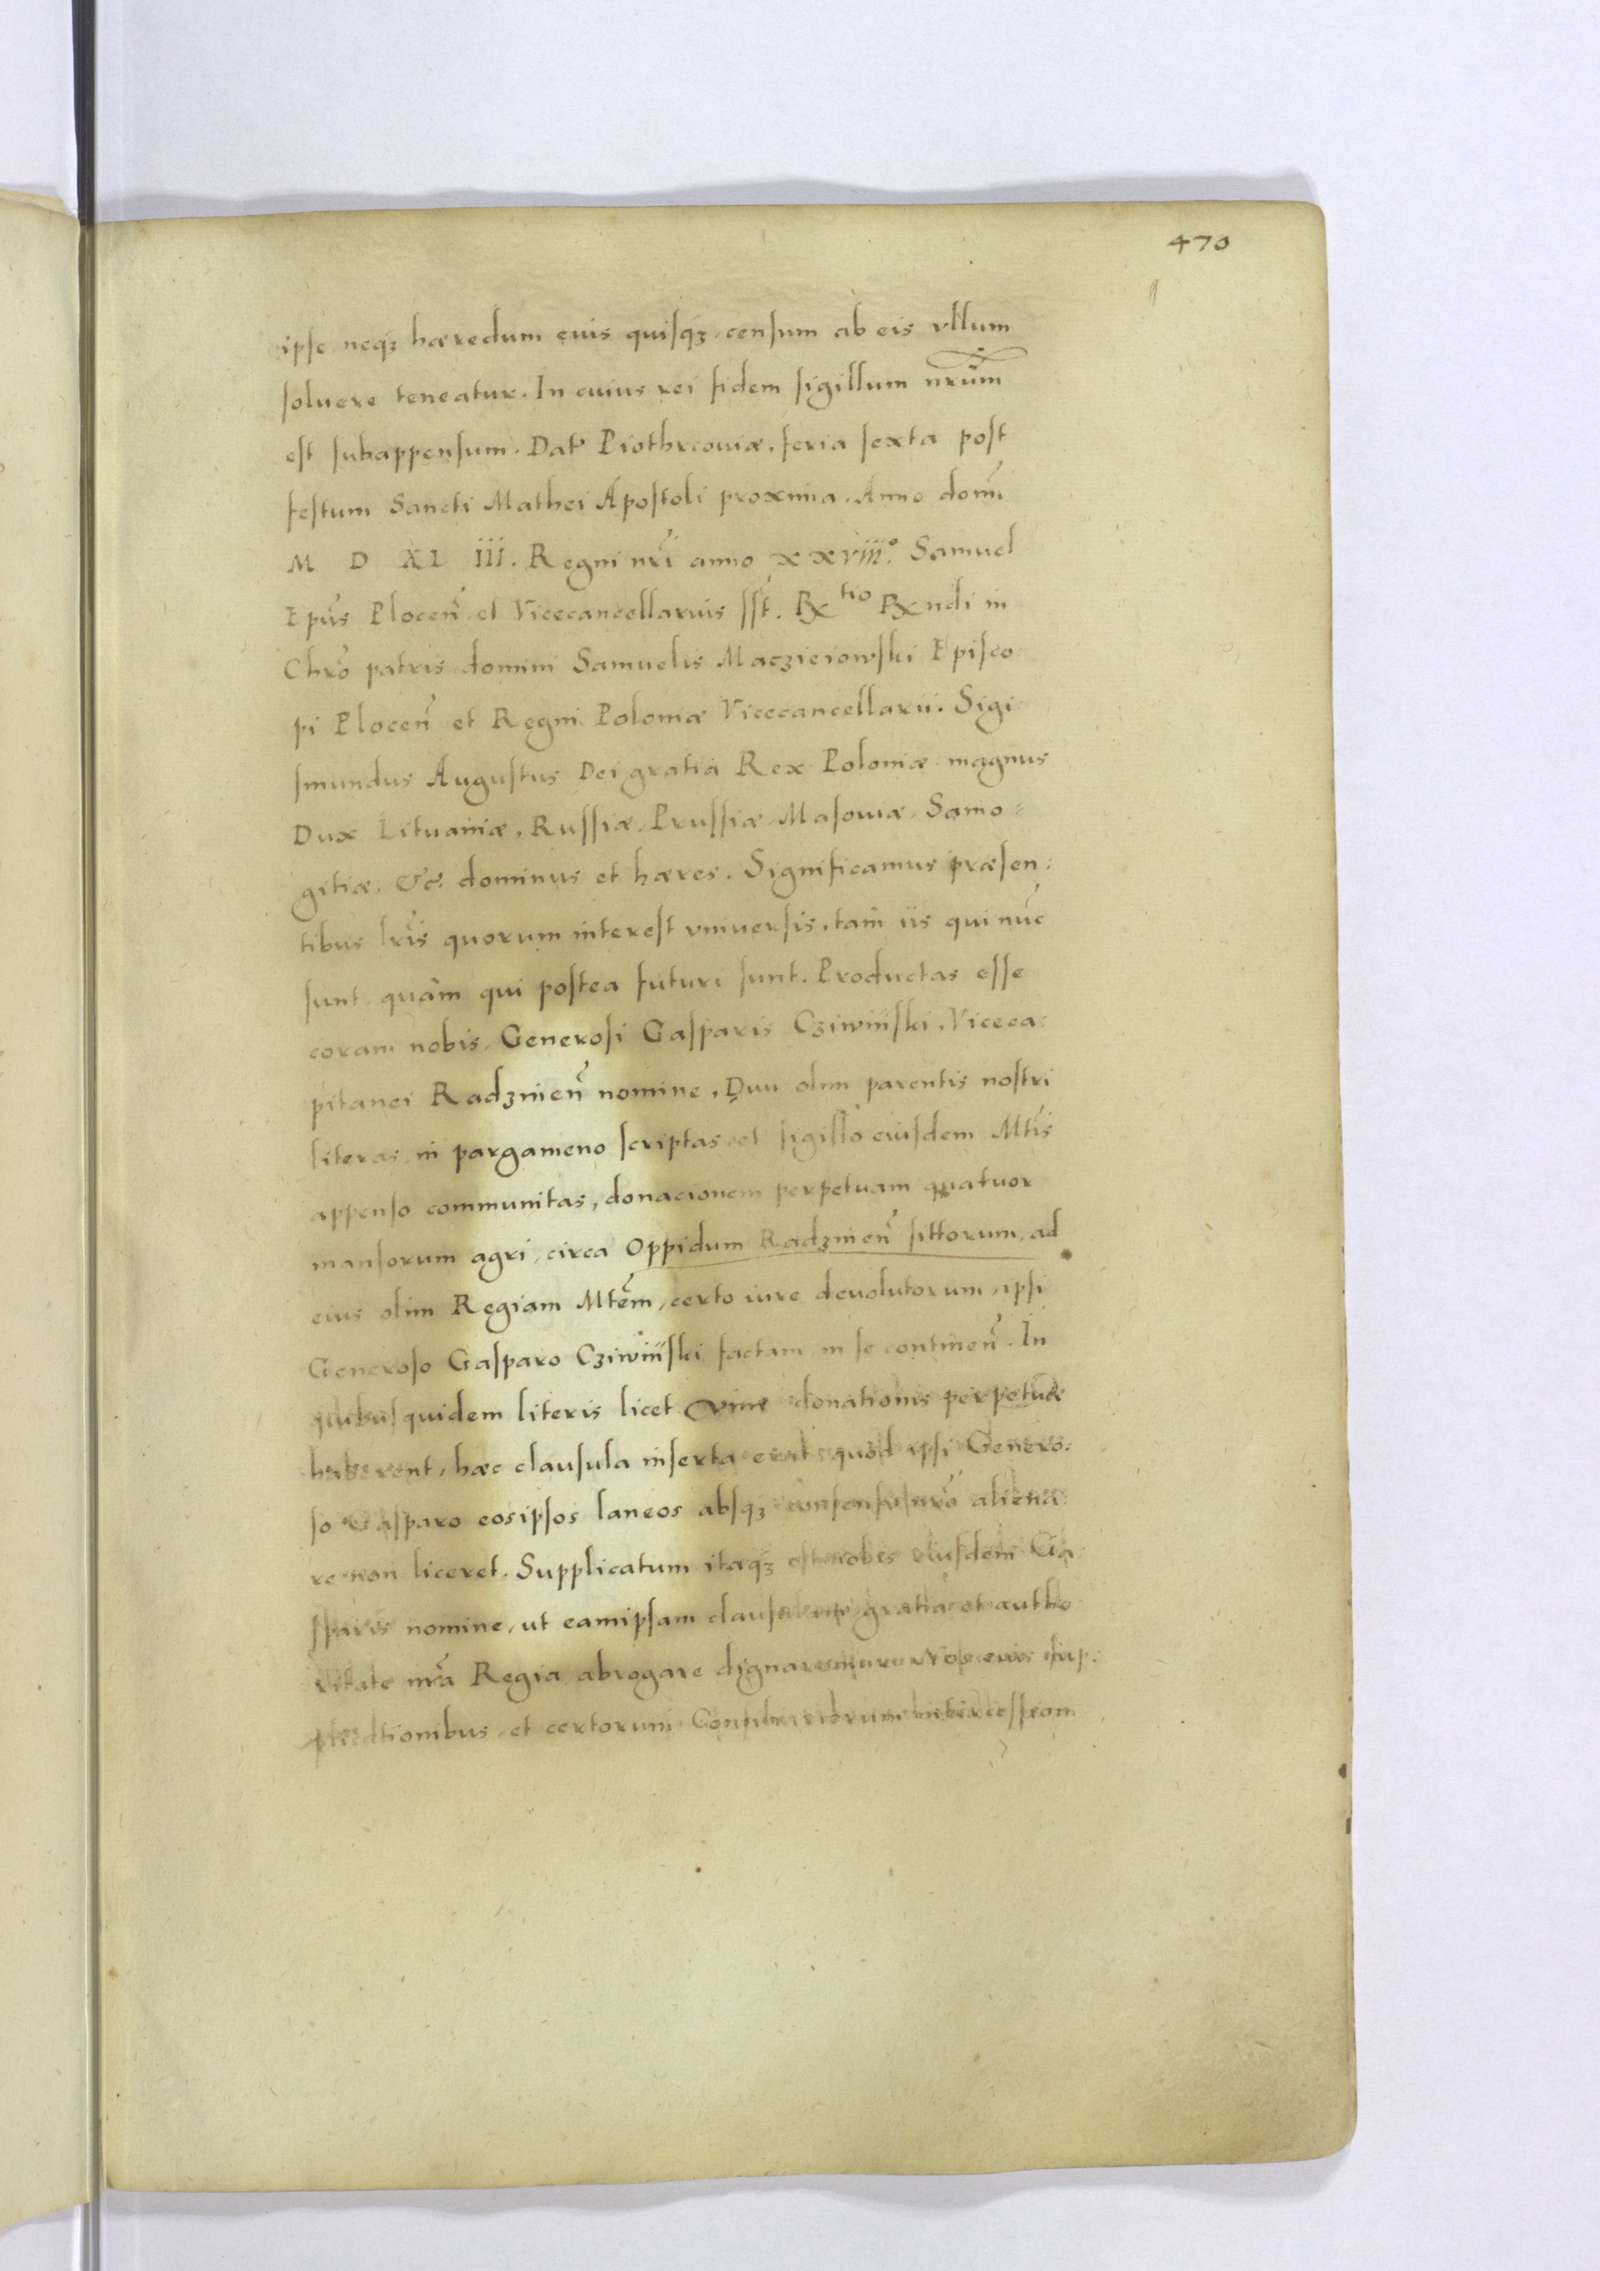 470
ipse neqꝫ hæredum eius quisqꝫ censum ab eis vllum
soluere teneatur. In cuius rei fidem sigillum nrũm
est subappensum. Dat̃ Piothrcouiæ, feria sexta post
festum Sancti Mathei Apostoli proxima. Anno domĩ
M D XL III. Regni nrĩ anno xxviii.° Samuel
Epũs Plocen̄ et Vicecancellarius sst̃. Rx tio Rxndi in
Chrõ patris domini Samuelis Maczieiowski Episco
pi Plocen̄ et Regni Poloniæ Vicecancellarii. Sigi
smundus Augustus Dei gratia Rex Poloniæ magnus
Dux Lituaniæ, Russiæ, Prussiæ, Masouiæ, Samo=
gitiæ, &c. dominus et hæres. Significamus præsen:
tibus lrĩs quorum interest vniuersis, tam̃ iis qui nũc
sunt quàm qui postea futuri sunt. Productas esse
coram nobis, Generosi Gasparis Cziwiński, Viceca:
pitanei Radznien̄ nomine, Diui olim parentis nostri
literas in pargameno scriptas et sigillo eiusdem Mtĩs
appenso communitas, donacionem perpetuam quatuor
mansorum agri, circa Oppidum Radznien̄ sittorum, ad
eius olim Regiam Mtẽm, certo iure deuolutorum, ipsi
Generoso Gasparo Cziwiński factam in se continen̄. In
quibus quidem literis licet vim donationis perpetuæ
haberent, hæc clausula inserta erat quòd ipsi Genero:
so Gasparo eos ipsos laneos absqꝫ consensu nrõ aliena:
re non liceret. Supplicatum itaqꝫ est nobis eiusdem Ga
sparis nomine, ut eamipsam clausulam gratia et autho
ritate nrã Regia abrogare dignaremur. Nos eius sup:
plicationibus et certorum Consiliariorum intercessioni